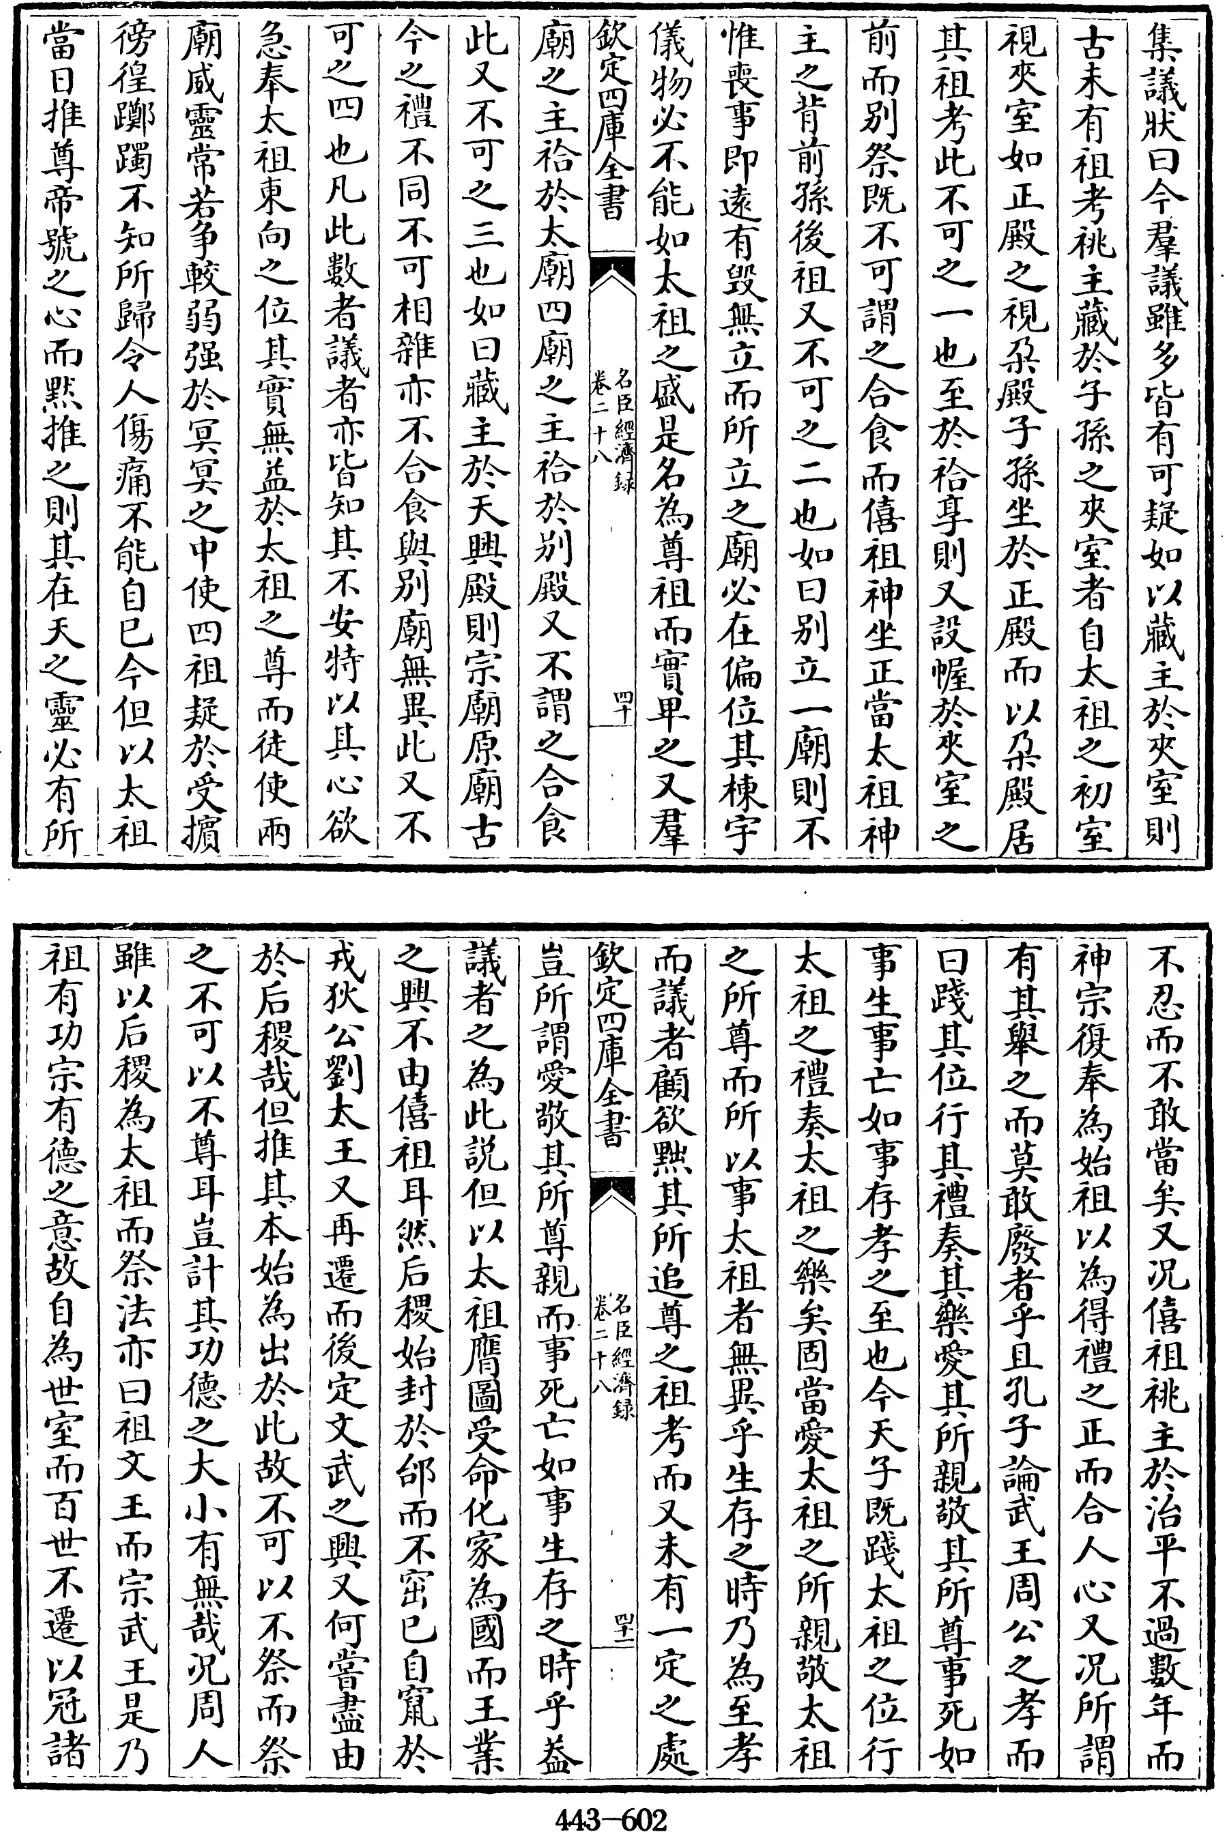 集議狀曰今羣議雖多皆有可疑如以藏主於夾室則
古未有祖考祧主藏於子孫之夾室者自太祖之初室
視夾室如正殿之視朶殿子孫坐於正殿而以朶殿居
其祖考此不可之一也至於祫享則又設幄於夾室之
前而别祭既不可謂之合食而僖祖神坐正當太祖神
主之背前孫後祖又不可之二也如曰别立一廟則不
惟喪事即逺有毁無立而所立之廟必在偏位其棟宇
儀物必不能如太祖之盛是名為尊祖而實卑之又羣
欽定四庫全書
名臣經濟録
卷二十八
四十
廟之主祫於太廟四廟之主祫於别殿又不謂之合食
此又不可之三也如曰藏主於天興殿則宗廟原廟古
今之禮不同不可相雜亦不合食與别廟無異此又不
可之四也凡此數者議者亦皆知其不安特以其心欲
急奉太祖東向之位其實無益於太祖之尊而徒使兩
廟威靈常若争較弱强於冥冥之中使四祖疑於受擯
徬徨躑躅不知所歸令人傷痛不能自已今但以太祖
當日推尊帝號之心而黙推之則其在天之靈必有所
不忍而不敢當矣又况僖祖祧主於治平不過數年而
神宗復奉為始祖以為得禮之正而合人心又况所謂
有其舉之而莫敢廢者乎且孔子論武王周公之孝而
曰踐其位行其禮奏其樂愛其所親敬其所尊事死如
事生事亡如事存孝之至也今天子既踐太祖之位行
太祖之禮奏太祖之樂矣固當愛太祖之所親敬太祖
之所尊而所以事太祖者無異乎生存之時乃為至孝
而議者顧欲黜其所追尊之祖考而又未有一定之處
欽定四庫全書
名臣經濟録
卷二十八
四十一
豈所謂愛敬其所尊親而事死亡如事生存之時乎葢
議者之為此説但以太祖膺圖受命化家為國而王業
之興不由僖祖耳然后稷始封於邰而不窋已自竄於
戎狄公劉太王又再遷而後定文武之興又何嘗盡由
於后稷哉但推其本始為出於此故不可以不祭而祭
之不可以不尊耳豈計其功德之大小有無哉况周人
雖以后稷為太祖而祭法亦曰祖文王而宗武王是乃
祖有功宗有德之意故自為世室而百世不遷以冠諸
443-602